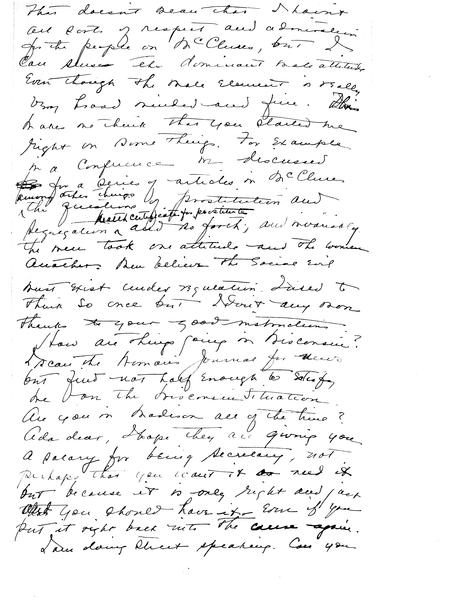 This doesn't mean that I haven't
all sorts of respect and admiration
for the people on McClures, but I
can sense the dominant male attitude
Even though the male element is really
very broad minded and fine. This
makes me think that you started me
right on some things. For example
in a conference we discussed
for a series of articles in McClures
among other things
the questions of prostitution and
health certificate for prostitutes
segregation and so forth, and invariably
the men took one attitude and the women
another. Men believe the Social Evil
must exist under regulation. I used to
think so once but I don't any more
thanks to your good instructions
How are things going in Wisconsin?
I scan the Woman's Journal for news
but find not half enough to satisfy
me on the Wisconsin Situation.
Are you in Madison all of the time?
Ada dear, I hope they are giving you
a salary for being secretary, not
perhaps that you want it or need it
but because it is only right and just
that you should have it - Even if you
put it right back into the cause again.
I am doing street speaking. Can you